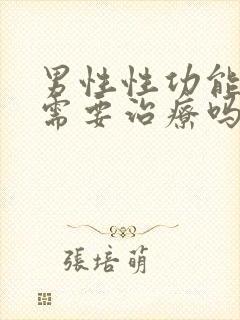 男性性功能
需要治療吗
張培萌